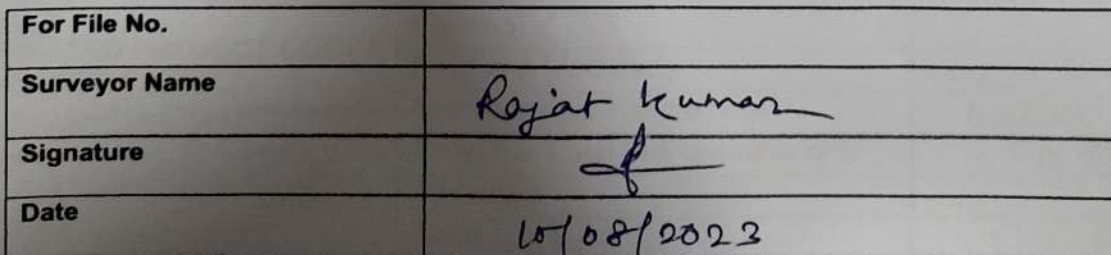 For File No.
Surveyor Name
Rajat Kumar
Signature
Date
10/08/2023